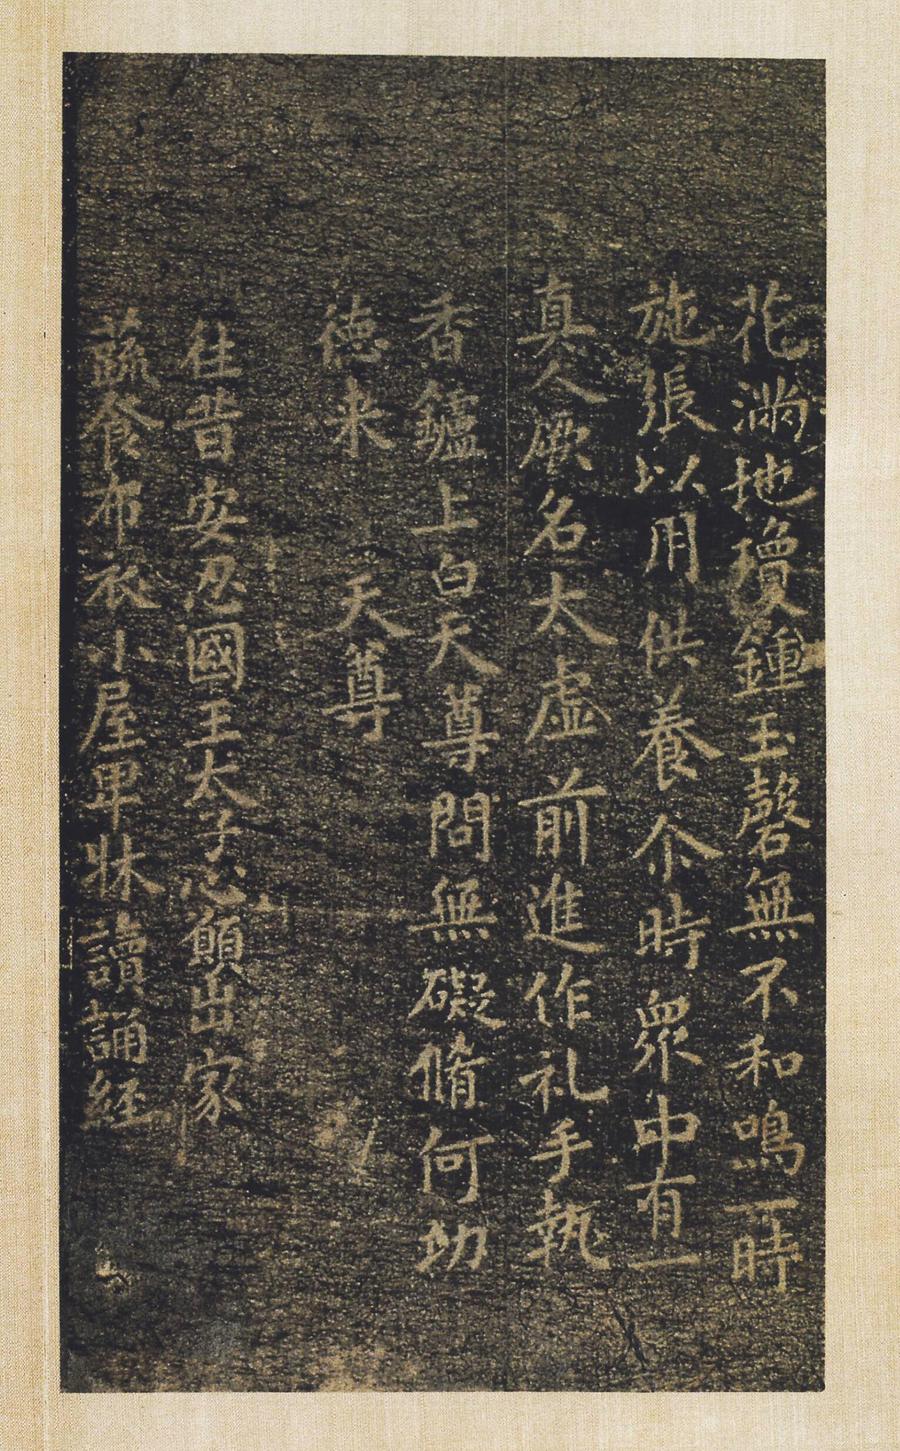 花滿地瓊鍾玉磬無不和鳴一時
施張以用供養尒時衆中有一
真人厥名太虛前進作礼手執
香鑪上白天尊問無礙脩何功
德来　天尊
往昔安忍國王太子心願出家
蔬食布衣小屋卑牀讀誦経